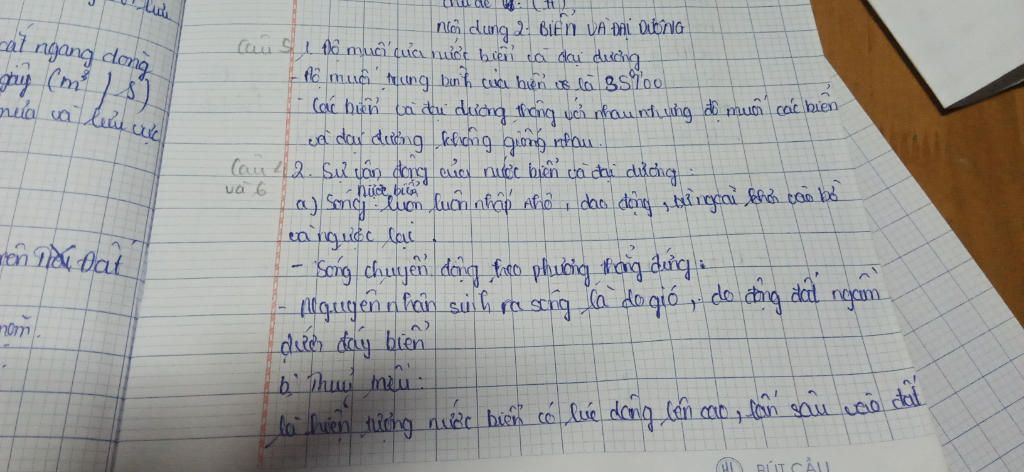 nội dung 2: BIỂN VÀ ĐẠI DƯƠNG
Câu 5
1. Độ muối của nước biển và đại dương
- Độ muối trung bình của biển là 35%00
- Các biển và đại dương thông với nhau nhưng độ muối các biển
và đại dương không giống nhau.
Câu
và 6
2. Sự vận động của nước biển và đại dương:
nước biển
a) Sóng: luôn luôn nhấp nhô, dao động, từ ngoài khơi vào bờ
và ngược lại.
- Sóng chuyển động theo phương thẳng đứng.
- Nguyên nhân sinh ra sóng là do gió, do động đất ngầm
dưới đáy biển
b. Thuỷ triều:
là hiện tượng nước biển có lúc dâng lên cao, lấn sâu vào đất
lưu
cắt ngang dòng
giây (m³/s)
mưa và lưu vực
Đất
BÚT CẦU